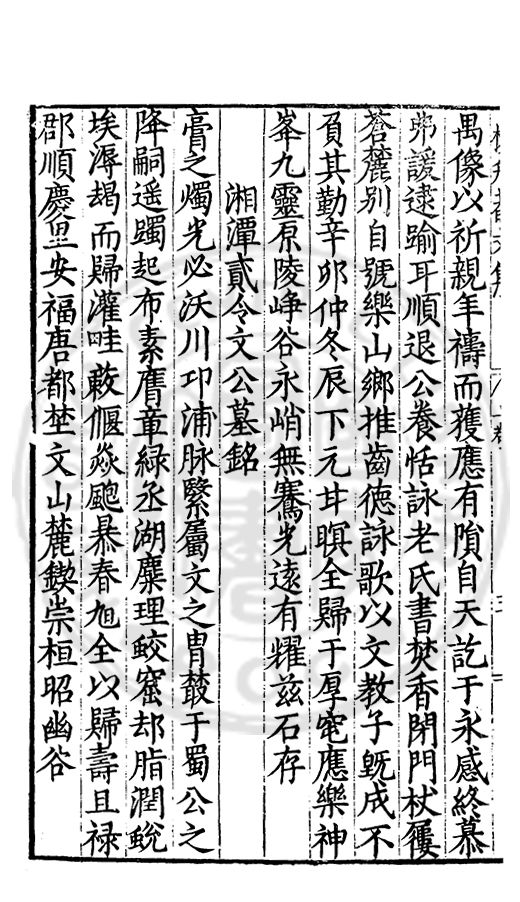 禺像以祈親年禱而蒦應有隕自天訖于永感終慕
弗諼逮踰耳順退公養恬詠老氏書焚香閉門杖屨
蒼麓别自號樂山鄉推齒徳詠歌以文教子旣成不
負其勤辛卯仲冬辰下元廿暝全歸于厚窀應樂神
峯九靈原陵崢谷永峭無騫光遠有燿兹石存
湘潭貳令文公墓銘
膏之燭光必沃川卭浦脉繫屬文之胄藂于蜀公之
降嗣遥躅起布素膺章綠丞湖麋理蛟窟却脂潤蛻
埃溽朅而歸灌畦蔌偃焱颮暴春旭全以歸壽且禄
郡順慶里安福唐都埜文山麓鍥崇桓昭幽谷